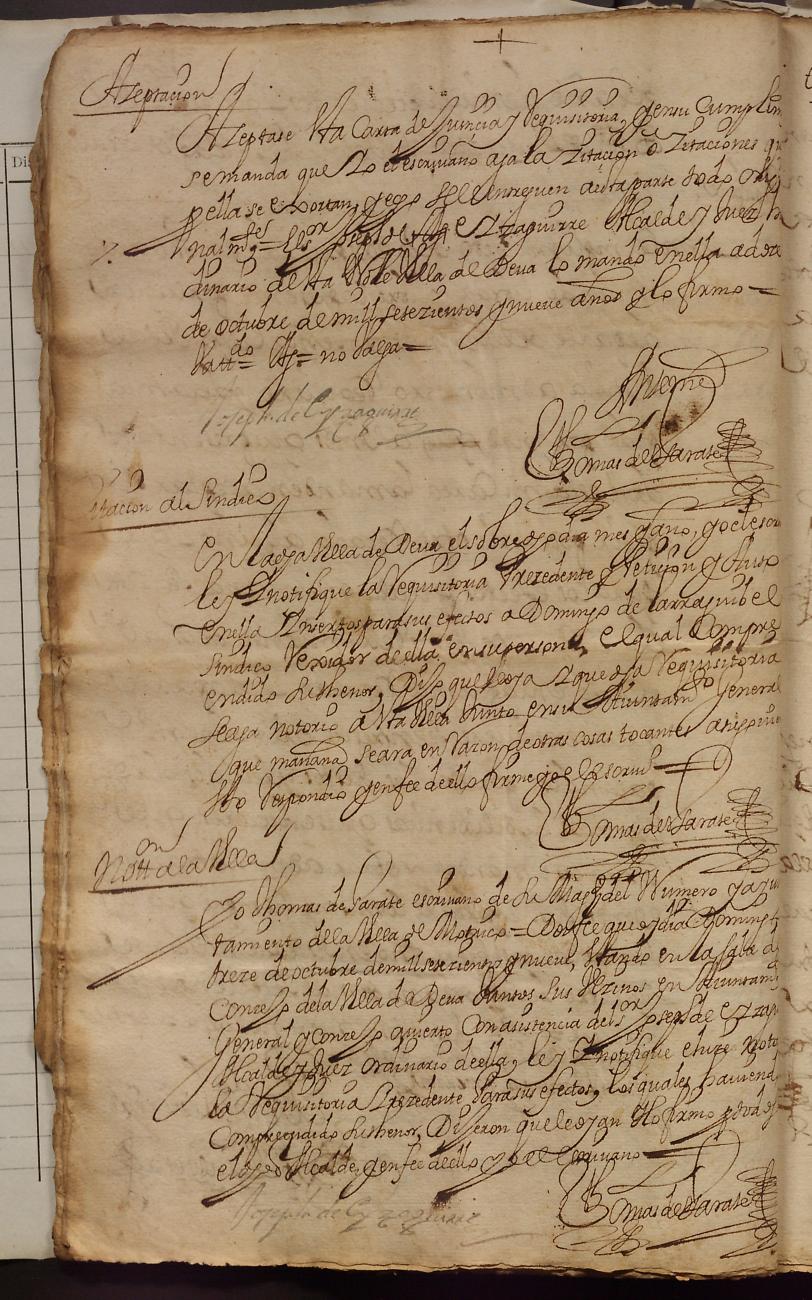 Azeptacion
Azeptase Vta Carta de Justicia y Requisitoria, y en su Cumplim
se manda que Yo el escrivano aga la Zitacion o Zitaciones q
pella se exortan, y ego se le entreguen a esta parte todo ori
nalmtes = El sor Joseph de Eyzaguirre Alcalde y Juez
dinario de Vta Noble Villa de Deva lo mando en ella a doze
de octubre de mill setezientos y nueve años y lo firmo =
tattdo = no balga =
Joseph de Eyzaguirre
Ante me
Thomas de Yarate
Zitacion al Sindico
En la dha Villa de Deva el sobre dho dia mes y año, yo el escri
ley y notifique la Requisitoria Prezedente y Peticion y Auto
en ella Ynsertos para sus efectos a Domingo de larrasquibel
Sindico Veedor de ella, en su persona, el qual Compre
endido su thenor, Dijo que se oya y que dha Requisitoria
se aga notorio a Vta Villa Junto en su Aiuntamto General
que mañana se ara en Razon de otras cosas tocantes
Esto Respondio y en fee de ello firme yo el Escrivo =
Thomas de Yarate
Notton a la Villa
Yo Thomas de Yarate escrivano de Su Magd del Numero y ayun
tamiento de la Villa de Motrico = Doy fee que oy dia Domingo
treze de octubre de mill setezientos y nueve, Estando en la sala de
Conzejo de la Villa de Deva Juntos sus Vezinos en Aiuntamto
General y Conzejo avierto Con asistencia del sor Joseph de Eyzag
Alcalde y Juez ordinario de ella, ley y notifique e hize noto
la Requisitoria Prezedente Para sus efectos, los quales haviend
Comprendido su thenor, Dijeron que le oyan Y lo firmo
el dho sor Alcalde, y en fee de ello yo el Escrivano =
Joseph de Eyzaguirre
Thomas de Yarate